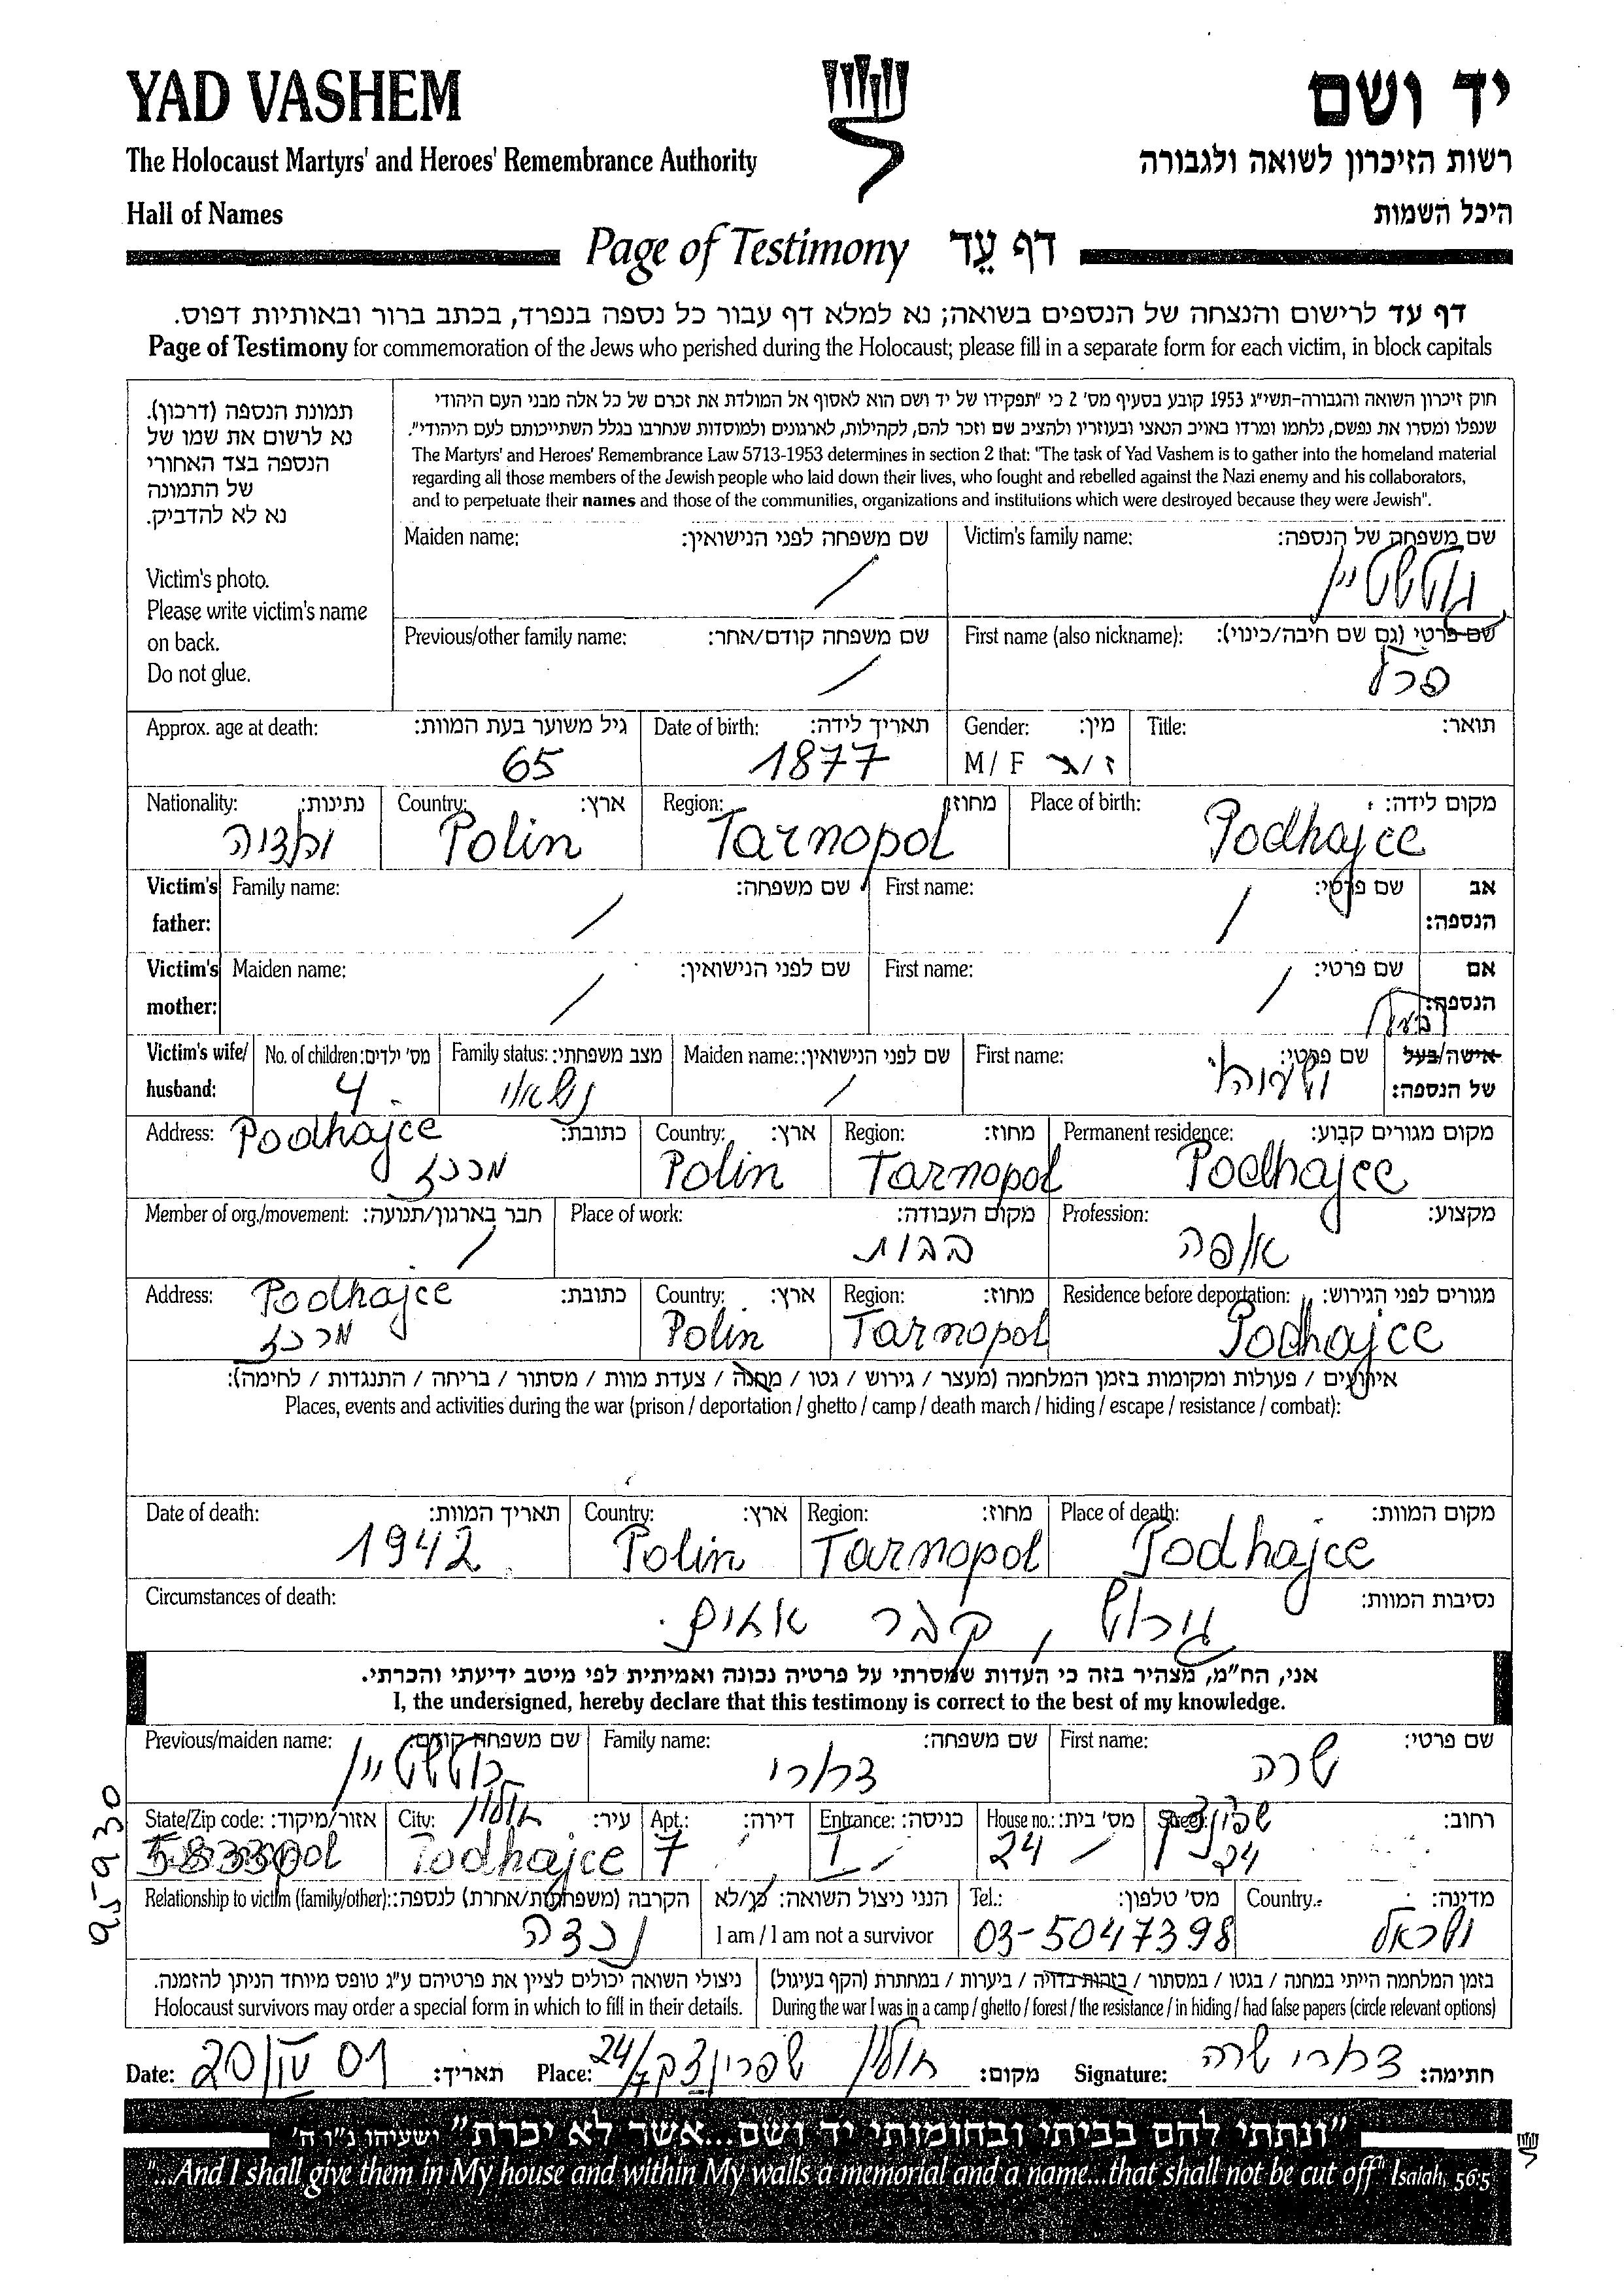 YAD VASHEM
יד ושם
The Holocaust Martyrs' and Heroes' Remembrance Authority
רשות הזיכרון לשואה ולגבורה
Hall of Names
היכל השמות
Page of Testimony דף עֵד
דף עד לרישום והנצחה של הנספים בשואה; נא למלא דף עבור כל נספה בנפרד, בכתב ברור ובאותיות דפוס.
Page of Testimony for commemoration of the Jews who perished during the Holocaust; please fill in a separate form for each victim, in block capitals
תמונת הנספה (דרכון).
נא לרשום את שמו של
הנספה בצד האחורי
של התמונה
נא לא להדביק.
Victim's photo.
Please write victim's name
on back.
Do not glue.
חוק זיכרון השואה והגבורה-תשי"ג 1953 קובע בסעיף מס' 2 כי "תפקידו של יד ושם הוא לאסוף אל המולדת את זכרם של כל אלה מבני העם היהודי
שנפלו ומסרו את נפשם, נלחמו ומרדו באויב הנאצי ובעוזריו ולהציב שם וזכר להם, לקהילות, לארגונים ולמוסדות שנחרבו בגלל השתייכותם לעם היהודי".
The Martyrs' and Heroes' Remembrance Law 5713-1953 determines in section 2 that: "The task of Yad Vashem is to gather into the homeland material
regarding all those members of the Jewish people who laid down their lives, who fought and rebelled against the Nazi enemy and his collaborators,
and to perpetuate their names and those of the communities, organizations and institutions which were destroyed because they were Jewish".
Maiden name: שם משפחה לפני הנישואין: Victim's family name: שם משפחה של הנספה:
Previous/other family name: שם משפחה קודם/אחר: First name (also nickname): שם פרטי (גם שם חיבה/כינוי):
פרל
Approx. age at death: גיל משוער בעת המוות: Date of birth: תאריך לידה: Gender: מין: Title: תואר:
65 1877 M / F ז/נ
Nationality: נתינות: Country: ארץ: Region: מחוז: Place of birth: מקום לידה:
Polin Tarnopol Podhajce
Victim's father: Family name: שם משפחה: First name: שם פרטי: אב הנספה:
Victim's mother: Maiden name: שם לפני הנישואין: First name: שם פרטי: אם הנספה:
בעל
Victim's wife/ husband: No. of children: מס' ילדים: Family status: מצב משפחתי: Maiden name: שם לפני הנישואין: First name: שם פרטי: אישה/בעל של הנספה:
4 נשואי
Address: כתובת: Country: ארץ: Region: מחוז: Permanent residence: מקום מגורים קבוע:
Podhajce Polin Tarnopol Podhajce
מרכז
Member of org./movement: חבר בארגון/תנועה: Place of work: מקום העבודה: Profession: מקצוע:
בבית אופה
Address: כתובת: Country: ארץ: Region: מחוז: Residence before deportation: מגורים לפני הגירוש:
Podhajce Polin Tarnopol Podhajce
מרכז
אירועים / פעולות ומקומות בזמן המלחמה (מעצר / גירוש / גטו / מחנה / צעדת מוות / מסתור / בריחה / התנגדות / לחימה):
Places, events and activities during the war (prison / deportation / ghetto / camp / death march / hiding / escape / resistance / combat):
Date of death: תאריך המוות: Country: ארץ: Region: מחוז: Place of death: מקום המוות:
1942 Polin Tarnopol Podhajce
Circumstances of death: נסיבות המוות:
גירוש, קבר אחים.
אני, הח"מ, מצהיר בזה כי העדות שמסרתי על פרטיה נכונה ואמיתית לפי מיטב ידיעתי והכרתי.
I, the undersigned, hereby declare that this testimony is correct to the best of my knowledge.
Previous/maiden name: שם משפחה קודם: Family name: שם משפחה: First name: שם פרטי:
שרה
State/Zip code: אזור/מיקוד: City: עיר: Apt.: דירה: Entrance: כניסה: House no.: מס' בית: Street: רחוב:
חולון
Podhajce 7 24 24
95-930
Relationship to victim (family/other): הקרבה (משפחתית/אחרת) לנספה: הנני ניצול השואה: כן/לא Tel.: מס' טלפון: Country: מדינה:
נכדה I am / I am not a survivor 03-5047398 ישראל
ניצולי השואה יכולים לציין את פרטיהם ע"ג טופס מיוחד הניתן להזמנה.
Holocaust survivors may order a special form in which to fill in their details.
בזמן המלחמה הייתי במחנה / בגטו / במסתור / בזהות בדויה / ביערות / במחתרת (הקף בעיגול)
During the war I was in a camp / ghetto / forest / the resistance / in hiding / had false papers (circle relevant options)
Date: 20/IV 01 תאריך: Place: 24/7 חולון מקום: Signature: שרה חתימה:
"ונתתי להם בביתי ובחומותי יד ושם...אשר לא יכרת" ישעיהו נ"ו ה'
"...And I shall give them in My house and within My walls a memorial and a name...that shall not be cut off" Isaiah, 56:5